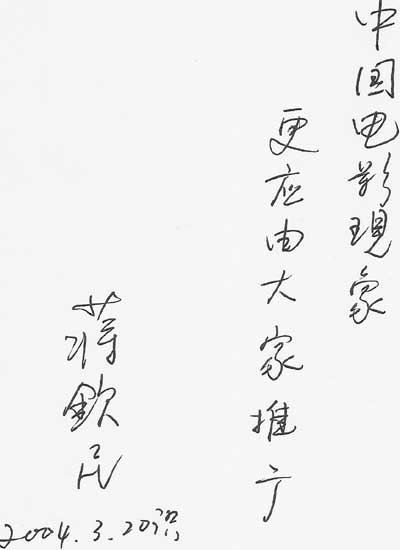 中国电影現象
更应由大家推广
蒋欽民
2004.3.20